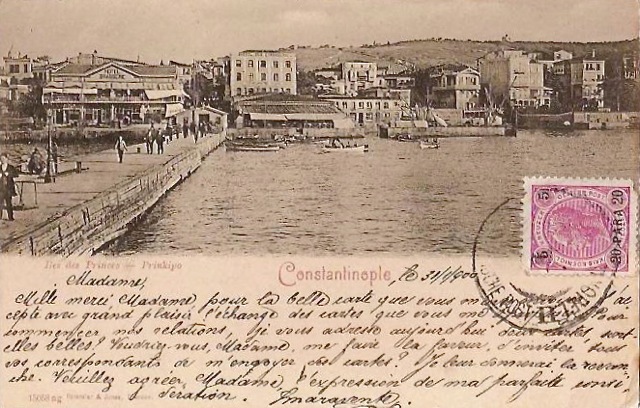 Iles des Princes — Prinkipo
Constantinople, le 31/1/900
5 5
20 PARA 20
Madame,
Mille merci Madame pour la belle carte que vous m'
cepte avec grand plaisir l'échange des cartes que vous me
commencer nos relations, je vous adresse aujourd'hui deux cartes sont
elles belles? Voudriez-vous, Madame me faire la faveur d'inviter tous
vos correspondants de m'engoyer des cartes? Je leur donnerai la revan
che. Veuillez agréer Madame l'expression de ma parfaite consi
dération.
15058